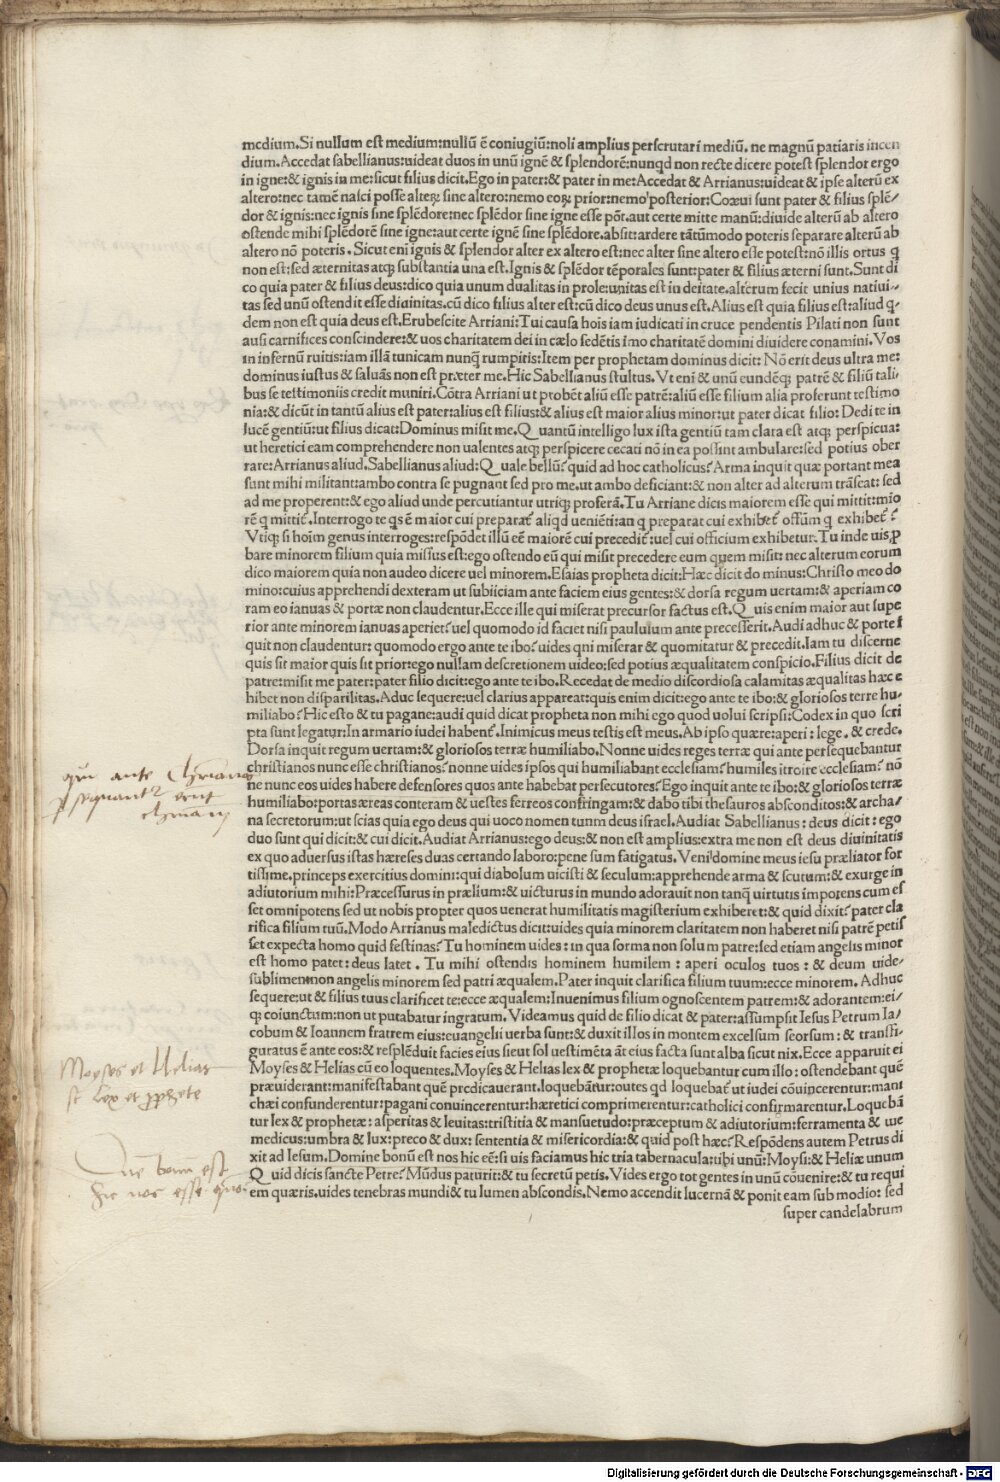 medium.Si nullum est medium:nullū ē coniugiū:noli amplius perscrutari mediū, ne magnū patiaris incen
dium.Accedat sabellianus:uideat duos in unū ignē & splendorē:nunqd non recte dicere potest splendor ergo
in igne:& ignis in me:sicut filius dicit.Ego in pater:& pater in me:Accedat & Arrianus:uideat & ipse alterū ex
altero:nec tamē nasci posse alteꝝ sine altero:nemo eoꝝ prior:nemo posterior:Coæui sunt pater & filius splē/
dor & ignis:nec ignis sine splēdore:nec splēdor sine igne esse pōt.aut certe mitte manū:diuide alterū ab altero
ostende mihi splēdorē sine igne:aut certe ignē sine splēdore.absit:ardere tātūmodo poteris separare alterū ab
altero nō poteris. Sicut eni ignis & splendor alter ex altero est:nec alter sine altero esse potest:nō illis ortus q
non est:sed æternitas atq; substantia una est.Ignis & splēdor tēporales sunt:pater & filius æterni sunt.Sunt di
co quia pater & filius deus:dico quia unum dualitas in prole:unitas est in deitate.alterum fecit unius natiui/
tas sed unū ostendit esse diuinitas.cū dico filius alter est:cū dico deus unus est.Alius est quia filius est:aliud q/
dem non est quia deus est.Erubescite Arriani:Tui causa hois iam iudicati in cruce pendentis Pilati non sunt
ausi carnifices conscindere:& uos charitatem dei in cælo sedētis imo charitatē domini diuidere conamini. Vos
in infernū ruitis:iam illā tunicam nunq̄ rumpitis:Item per prophetam dominus dicit: Nō erit deus ultra me:
dominus iustus & saluās non est præter me.Hic Sabellianus stultus. Vt eni & unū eundēq; patrē & filiū tali/
bus se testimoniis credit muniri.Cōtra Arriani ut probēt aliū esse patrē:aliū esse filium alia proferunt testimo
nia:& dicūt in tantū alius est pater:alius est filius:& alius est maior alius minor:ut pater dicat filio: Dedi te in
lucē gentiū:ut filius dicat:Dominus misit me.Quantū intelligo lux ista gentiū tam clara est atq; perspicua:
ut heretici eam comprehendere non ualentes atq; perspicere cecati nō in ea possint ambulare:sed potius ober
rare:Arrianus aliud.Sabellianus aliud:Quale bellū? quid ad hoc catholicus? Arma inquit quæ portant mea
sunt mihi militant:ambo contra se pugnant sed pro me.ut ambo deficiant:& non alter ad alterum trāseat: sed
ad me properent:& ego aliud unde percutiantur utriq; proferā.Tu Arriane dicis maiorem esse qui mittit:mio
rē q mittit̄.Interrogo te qs ē maior cui preparat̄ aliqd ueniēti:an q preparat cui exhibet̄ offūm q exhibet̄?
Vtiq; si hoīm genus interroges:respōdet illū eē maiorē cui precedit̄:uel cui officium exhibetur.Tu inde uis,p
bare minorem filium quia missus est:ego ostendo eū qui misit precedere eum quem misit: nec alterum eorum
dico maiorem quia non audeo dicere uel minorem.Esaias propheta dicit:Hæc dicit do minus:Christo meo do
mino:cuius apprehendi dexteram ut subiiciam ante faciem eius gentes:& dorsa regum uertam:& aperiam co
ram eo ianuas & portæ non claudentur.Ecce ille qui miserat precursor factus est.Quis enim maior aut supe
rior ante minorem ianuas aperiet? uel quomodo id faciet nisi paululum ante precesserit.Audi adhuc & porte i
quit non claudentur: quomodo ergo ante te ibo? uides qni miserar & quomitatur & precedit.Iam tu discerne
quis sit maior quis sit prior:ego nullam descretionem uideo:sed potius æqualitatem conspicio.Filius dicit de
patre:misit me pater:pater filio dicit:ego ante te ibo.Recedat de medio discordiosa calamitas æqualitas hæc e
hibet non disparilitas.Aduc sequere:uel clarius appareat:quis enim dicit:ego ante te ibo:& gloriosos terre hu/
miliabo? Hic esto & tu pagane:audi quid dicat propheta non mihi ego quod uolui scripsi:Codex in quo scri
pta sunt legatur:In armario iudei habent̄.Inimicus meus testis est meus.Ab ipso quære:aperi: lege. & crede.
Dorsa inquit regum uertam:& gloriosos terræ humiliabo. Nonne uides reges terræ qui ante persequebantur
christianos nunc esse christianos? nonne uides ipsos qui humiliabant ecclesiam? humiles itroire ecclesiam? nō
ne nunc eos uides habere defensores quos ante habebat persecutores? Ego inquit ante te ibo:& gloriosos terræ
humiliabo:portas æreas conteram & uestes ferreos confringam:& dabo tibi thesauros absconditos:& archa/
na secretorum:ut scias quia ego deus qui uoco nomen tuum deus israel.Audiat Sabellianus: deus dicit: ego
duo sunt qui dicit:& cui dicit.Audiat Arrianus:ego deus:& non est amplius:extra me non est deus diuinitatis
ex quo aduersus istas hæreses duas certando laboro:pene sum fatigatus. Veni domine meus iesu præliator for
tissime.princeps exercitius domini:qui diabolum uicisti & seculum:apprehende arma & scutum:& exurge in
adiutorium mihi:Præcessurus in prælium:& uicturus in mundo adorauit non tanq̄ uirtutis ipotens cum es
set omnipotens sed ut nobis propter quos uenerat humilitatis magisterium exhiberet:& quid dixit? pater cla
rifica filium tuū.Modo Arrianus maledictus dicit:uides quia minorem claritatem non haberet nisi patrē petis
set expecta homo quid festinas? Tu hominem uides: in qua forma non solum patre:sed etiam angelis minor
est homo patet: deus latet. Tu mihi ostendis hominem humilem: aperi oculos tuos: & deum uide/
sublimem:non angelis minorem sed patri æqualem.Pater inquit clarifica filium tuum:ecce minorem. Adhuc
sequere:ut & filius tuus clarificet te:ecce æqualem:Inuenimus filium ognoscentem patrem:& adorantem:ei/
q; coiunctum:non ut putabatur ingratum. Videamus quid de filio dicat & pater:assumpsit Iesus Petrum Ia/
cobum & Ioannem fratrem eius:euangelii uerba sunt:& duxit illos in montem excelsum seorsum: & transfi/
guratus ē ante eos:& resplēduit facies eius sicut sol uestimēta āt eius facta sunt alba sicut nix.Ecce apparuit ei
Moyses & Helias cū eo loquentes.Moyses & Helias lex & prophetæ loquebantur cum illo: ostendebant quē
præuiderant:manifestabant quē predicauerant.loquebātur:outes qd loquebat̄ ut iudei cōuincerentur:mani
chæi confunderentur:pagani conuincerentur:hæretici comprimerentur:catholici confirmarentur.Loquebā
tur lex & prophetæ: asperitas & leuitas:tristitia & mansuetudo:præceptum & adiutorium:ferramenta & ue
medicus:umbra & lux:preco & dux: sententia & misericordia:& quid post hæc? Respōdens autem Petrus di
xit ad Iesum.Domine bonū est nos hic eē:si uis faciamus hic tria tabernacula:tibi unū:Moysi:& Heliæ unum
Quid dicis sancte Petre? Mūdus paturit:& tu secretū petis. Vides ergo tot gentes in unū cōuenire:& tu requi
em quæris.uides tenebras mundi & tu lumen abscondis.Nemo accendit lucernā & ponit eam sub modio: sed
super candelabrum
qui ante Christianos
psequantr erūt
christiani
Moyses et Helias
st Lex et prophete
Dne bonū est
hic nos esse